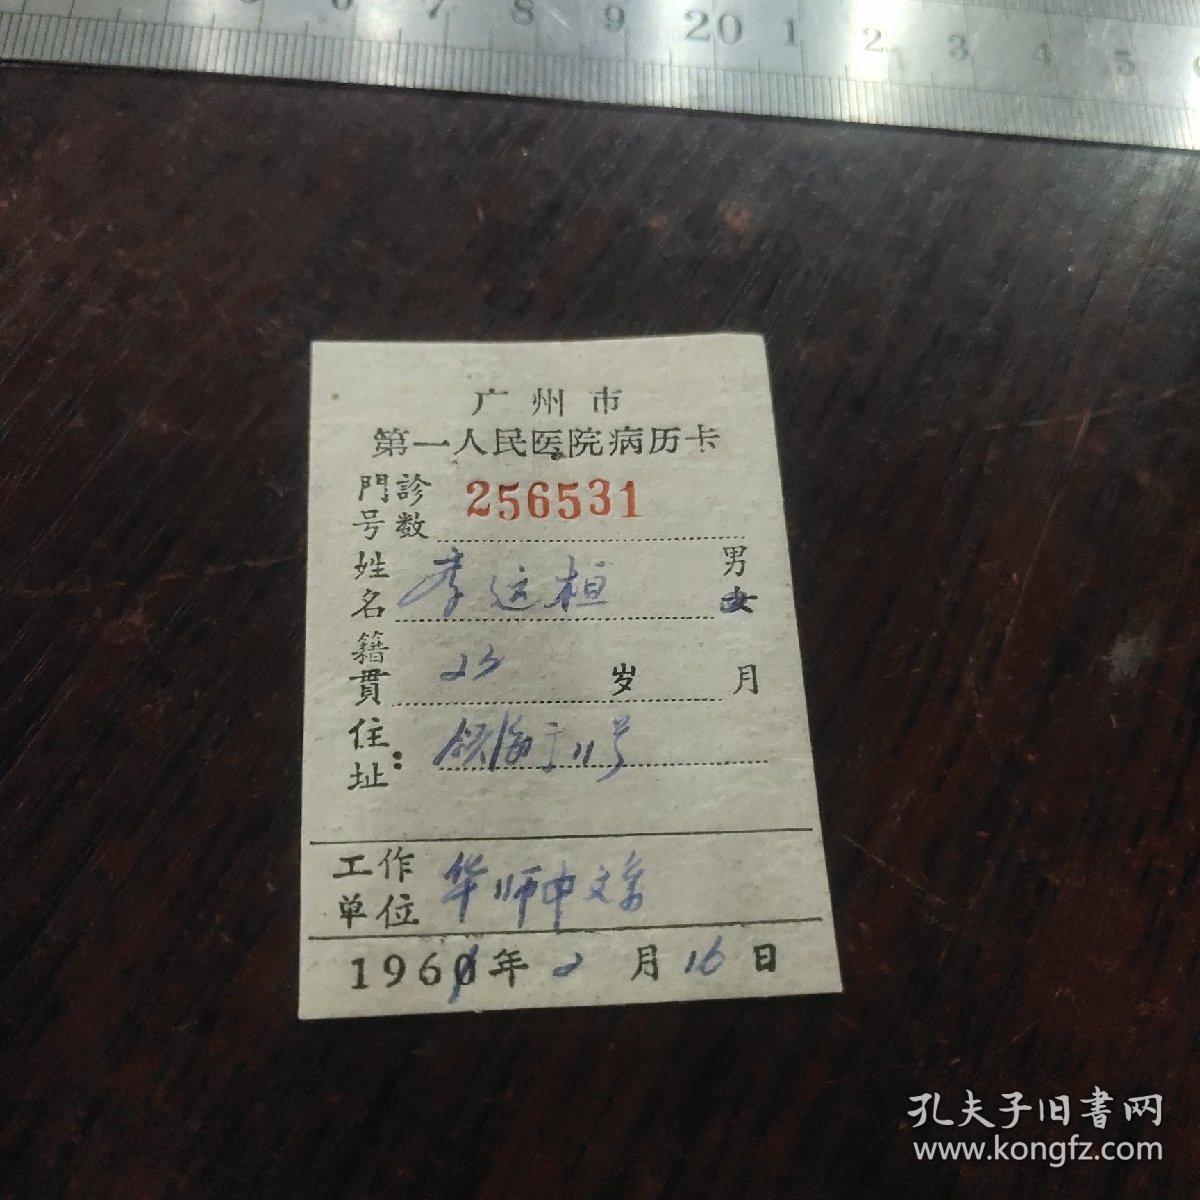 6 7 8 9 20 1 2 3 4 5
广州市
第一人民医院病历卡
門診号数 256531
姓名 李运桓 男女
籍貫 23 岁 月
住址: 11号
工作单位 华师中文系
1961年 2 月 16 日
孔夫子旧書网
www.kongfz.com